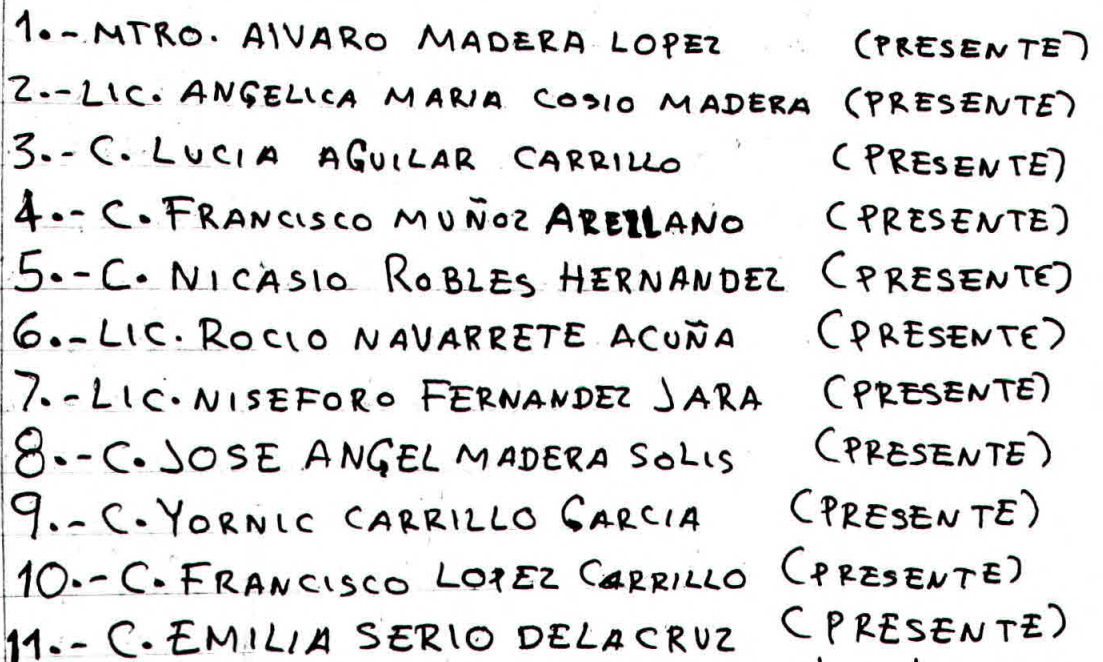 1.- MTRO. AlVARO MADERA LOPEZ (PRESENTE)
2.-LIC. ANGELICA MARIA COSIO MADERA (PRESENTE)
3.- C. LUCIA AGUILAR CARRILLO (PRESENTE)
4.- C. FRANCISCO MUÑOZ ARELLANO (PRESENTE)
5.-C. NICASIO ROBLES HERNANDEZ (PRESENTE)
6.-LIC. ROCIO NAVARRETE ACUÑA (PRESENTE)
7.-LIC. NISEFORO FERNANDEZ JARA (PRESENTE)
8.-C. JOSE ANGEL MADERA SOLIS (PRESENTE)
9.- C. YORNIC CARRILLO GARCIA (PRESENTE)
10.- C. FRANCISCO LOPEZ CARRILLO (PRESENTE)
11.- C. EMILIA SERIO DELACRUZ (PRESENTE)